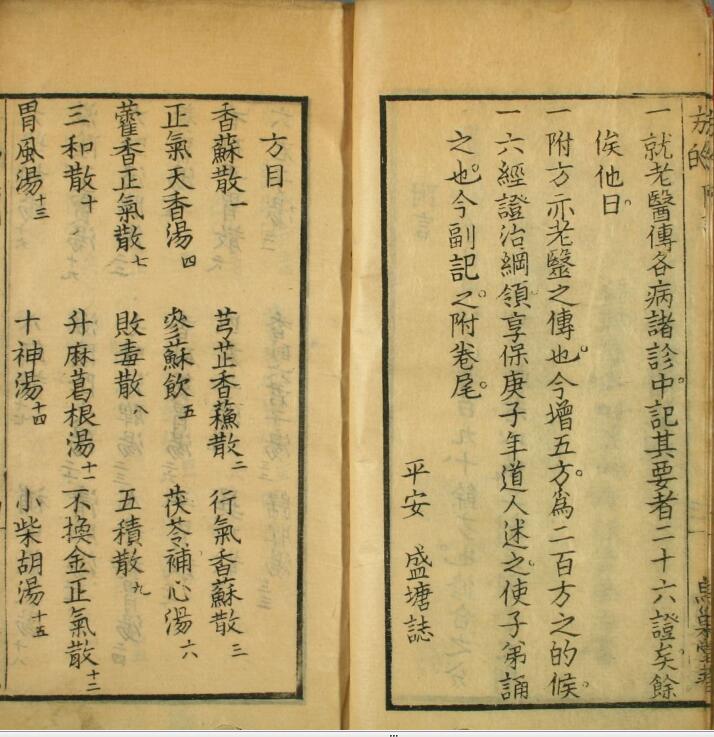 一就老醫傳各病諸診中記其要者二十六證矣。餘
俟他日。
一附方亦老醫之傳也。今增五方。爲二百方之的候。
一六經證治綱領享保庚子年道人述之。使子弟誦
之也。今副記之。附卷尾。
平安　盛塘誌
方目
香蘇散一　芎芷香蘓散二　行氣香蘇散三
正氣天香湯四　參蘇飲五　茯苓補心湯六
藿香正氣散七　敗毒散八　五積散九
三和散十　升麻葛根湯十一　不換金正氣散十二
胃風湯十三　十神湯十四　小柴胡湯十五